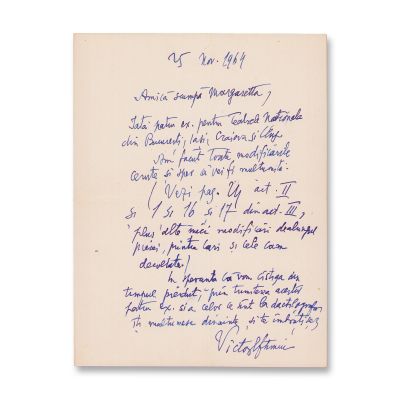 25 Nov. 1964
Amică scumpă Margaretta,
Iată patru ex. pentru Teatrele Naționale
din București, Iași, Craiova și Cluj.
Am făcut toate modificările
cerute și sper că vei fi mulțumită.
(Vezi pag. act. II
și 1 și 16 și 17 din act. III,
plus alte mici modificări dealungul
piesei, printre cari și cele cam
decoltate!
In speranța că vom câștiga din
timpul pierdut, prin trimiterea acestor
patru ex. și a celor ce sunt la dactilografă,
îți mulțumesc dinainte, și te îmbrățișez
Victor Eftimiu